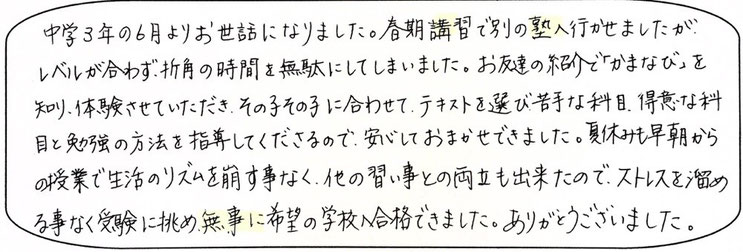 中学3年の6月よりお世話になりました。春期講習で別の塾へ行かせましたが、
レベルが合わず、折角の時間を無駄にしてしまいました。お友達の紹介で「かまなび」を
知り、体験させていただき、その子その子に合わせて、テキストを選び苦手な科目、得意な科
目と勉強の方法を指導してくださるので、安心しておまかせできました。夏休みも早朝から
の授業で生活のリズムを崩す事なく、他の習い事との両立も出来たので、ストレスを溜め
る事なく受験に挑め、無事に希望の学校へ合格できました。ありがとうございました。